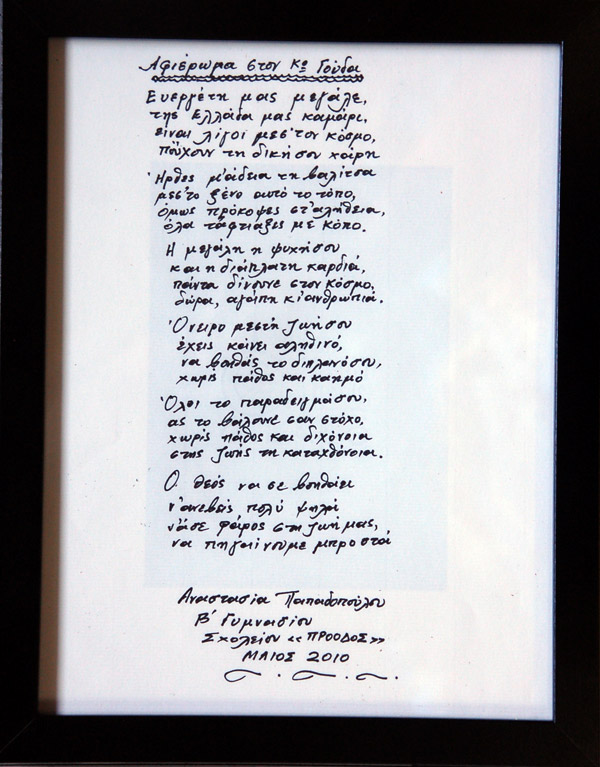 Αφιέρωμα στον Κο Γούδα
Ευεργέτη μας μεγάλε,
της Ελλάδα μας καμάρι,
είναι λίγοι μεσ' τον κόσμο,
πούχουν τη δική σου χάρη
Ήρθες μ' άδεια τη βαλίτσα
μεσ' το ξένο αυτό το τόπο,
όμως πρόκοψες στ' αλήθεια,
όλα τάφτιαξες με κόπο.
Η μεγάλη η ψυχή σου
και η διάπλατη καρδιά,
πάντα δίνουνε στον κόσμο,
δώρα, αγάπη κι ανθρωπιά.
Όνειρο μεστή ζωή σου
έχεις κάνει αληθινό,
να βοηθάς το διπλανό σου,
χωρίς πάθος και καημό
Όλοι το παράδειγμά σου,
ας το βάλουνε σαν στόχο,
χωρίς πάθος και διχόνοια
στης ζωής τη καταχθόνοια.
Ο θεός να σε βοηθάει
ν' ανεβείς πολύ ψηλά
νάσε φάρος στη ζωή μας,
να πηγαίνουμε μπροστά
Αναστασία Παπαδοπούλου
Β' Γυμνασίου
Σχολείον «ΠΡΟΟΔΟΣ»
ΜΑΙΟΣ 2010